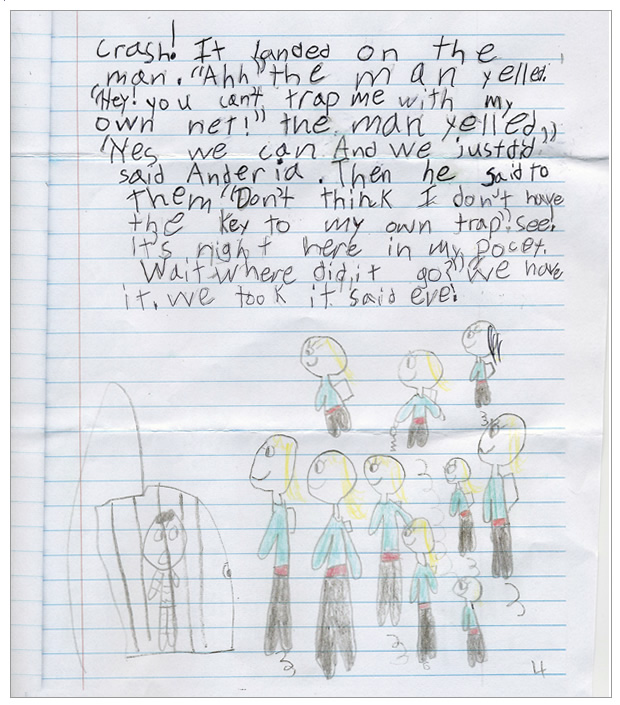 Crash! It landed on the
man. "Ahh" the man yelled.
"Hey! you cant trap me with my
own net!" the man yelled,"
"Yes we can And we justdid"
said Anderia. Then he said to
them "Don't think I don't have
the key to my own trap" see!
It's right here in my Pocet.
Wait where did it go?" We have
it. we took it said eve!
4